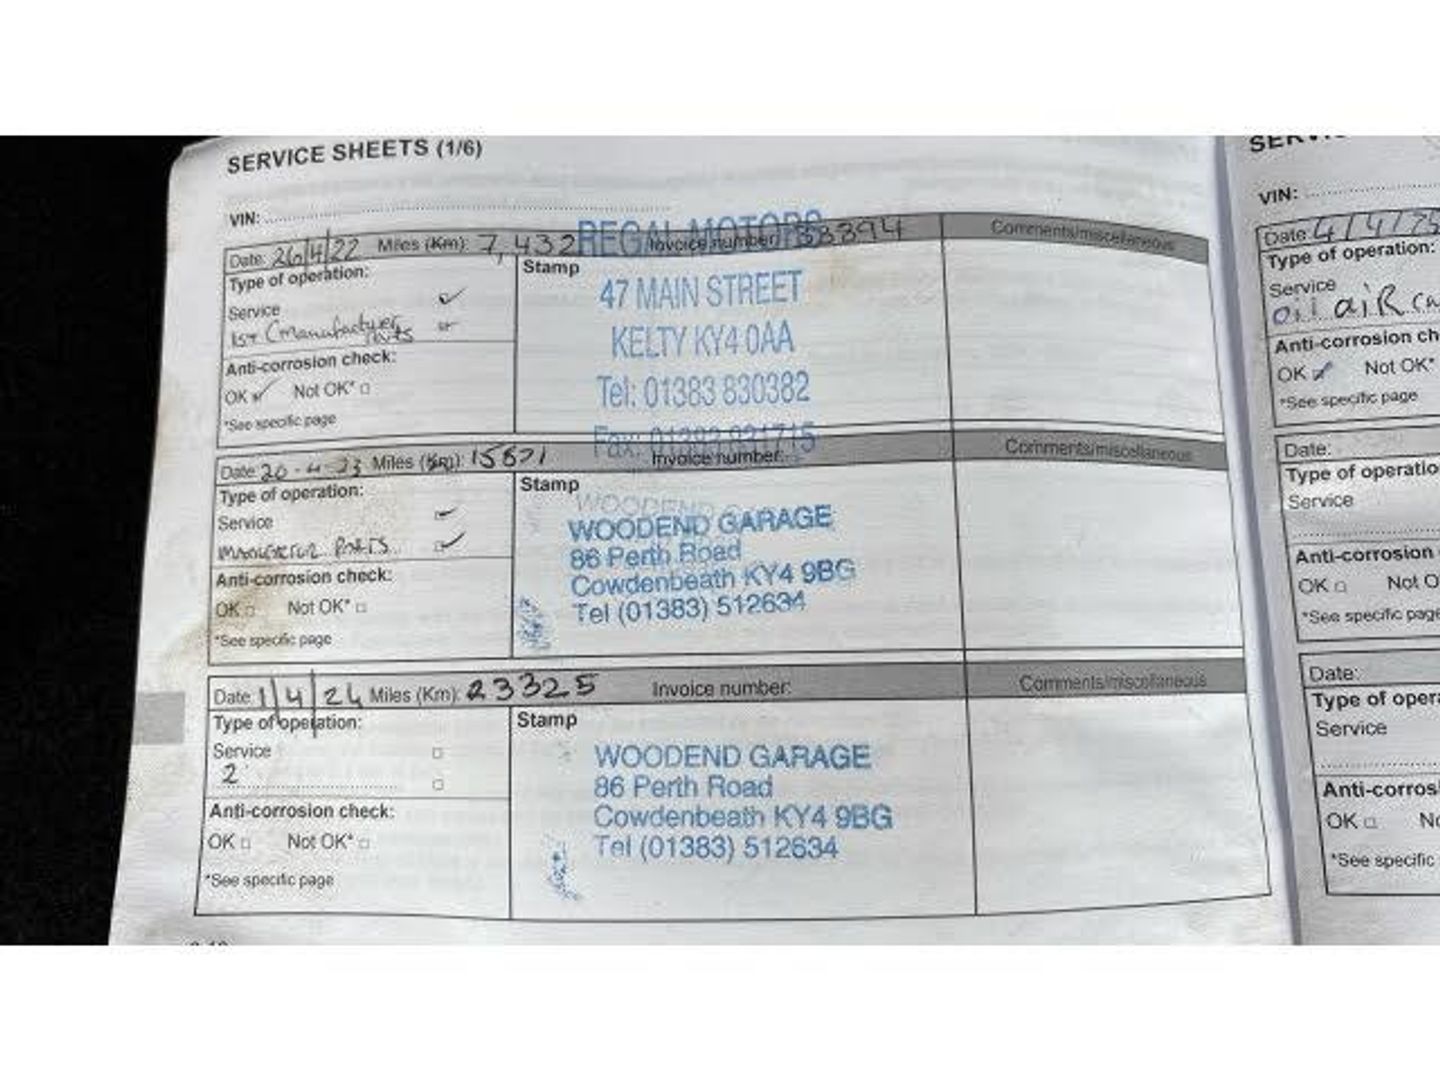 SERVICE SHEETS (1/6)
VIN:
Date: 26/4/22 Miles (Km): 7,432 Invoice number: 33394 Comments/miscellaneous
Type of operation:
Service
1st (manufacturer parts
Anti-corrosion check:
OK Not OK*
*See specific page
Stamp
REGAL MOTORS
47 MAIN STREET
KELTY KY4 0AA
Tel: 01383 830382
Fax: 01383 831715
Date: 20-4-23 Miles (Km): 15871 Invoice number: Comments/miscellaneous
Type of operation:
Service
Parts
Anti-corrosion check:
OK Not OK*
*See specific page
Stamp
WOODEND GARAGE
WOODEND GARAGE
86 Perth Road
Cowdenbeath KY4 9BG
Tel (01383) 512634
Date: 1/4/24 Miles (Km): 23325 Invoice number: Comments/miscellaneous
Type of operation:
Service
2
Anti-corrosion check:
OK Not OK*
*See specific page
Stamp
WOODEND GARAGE
86 Perth Road
Cowdenbeath KY4 9BG
Tel (01383) 512634
VIN:
Date: 4/4/25
Type of operation:
Service
oil aiR
Anti-corrosion ch
OK Not OK*
*See specific page
Date:
Type of operatio
Service
Anti-corrosion
OK Not O
*See specific page
Date:
Type of opera
Service
Anti-corros
OK No
*See specific